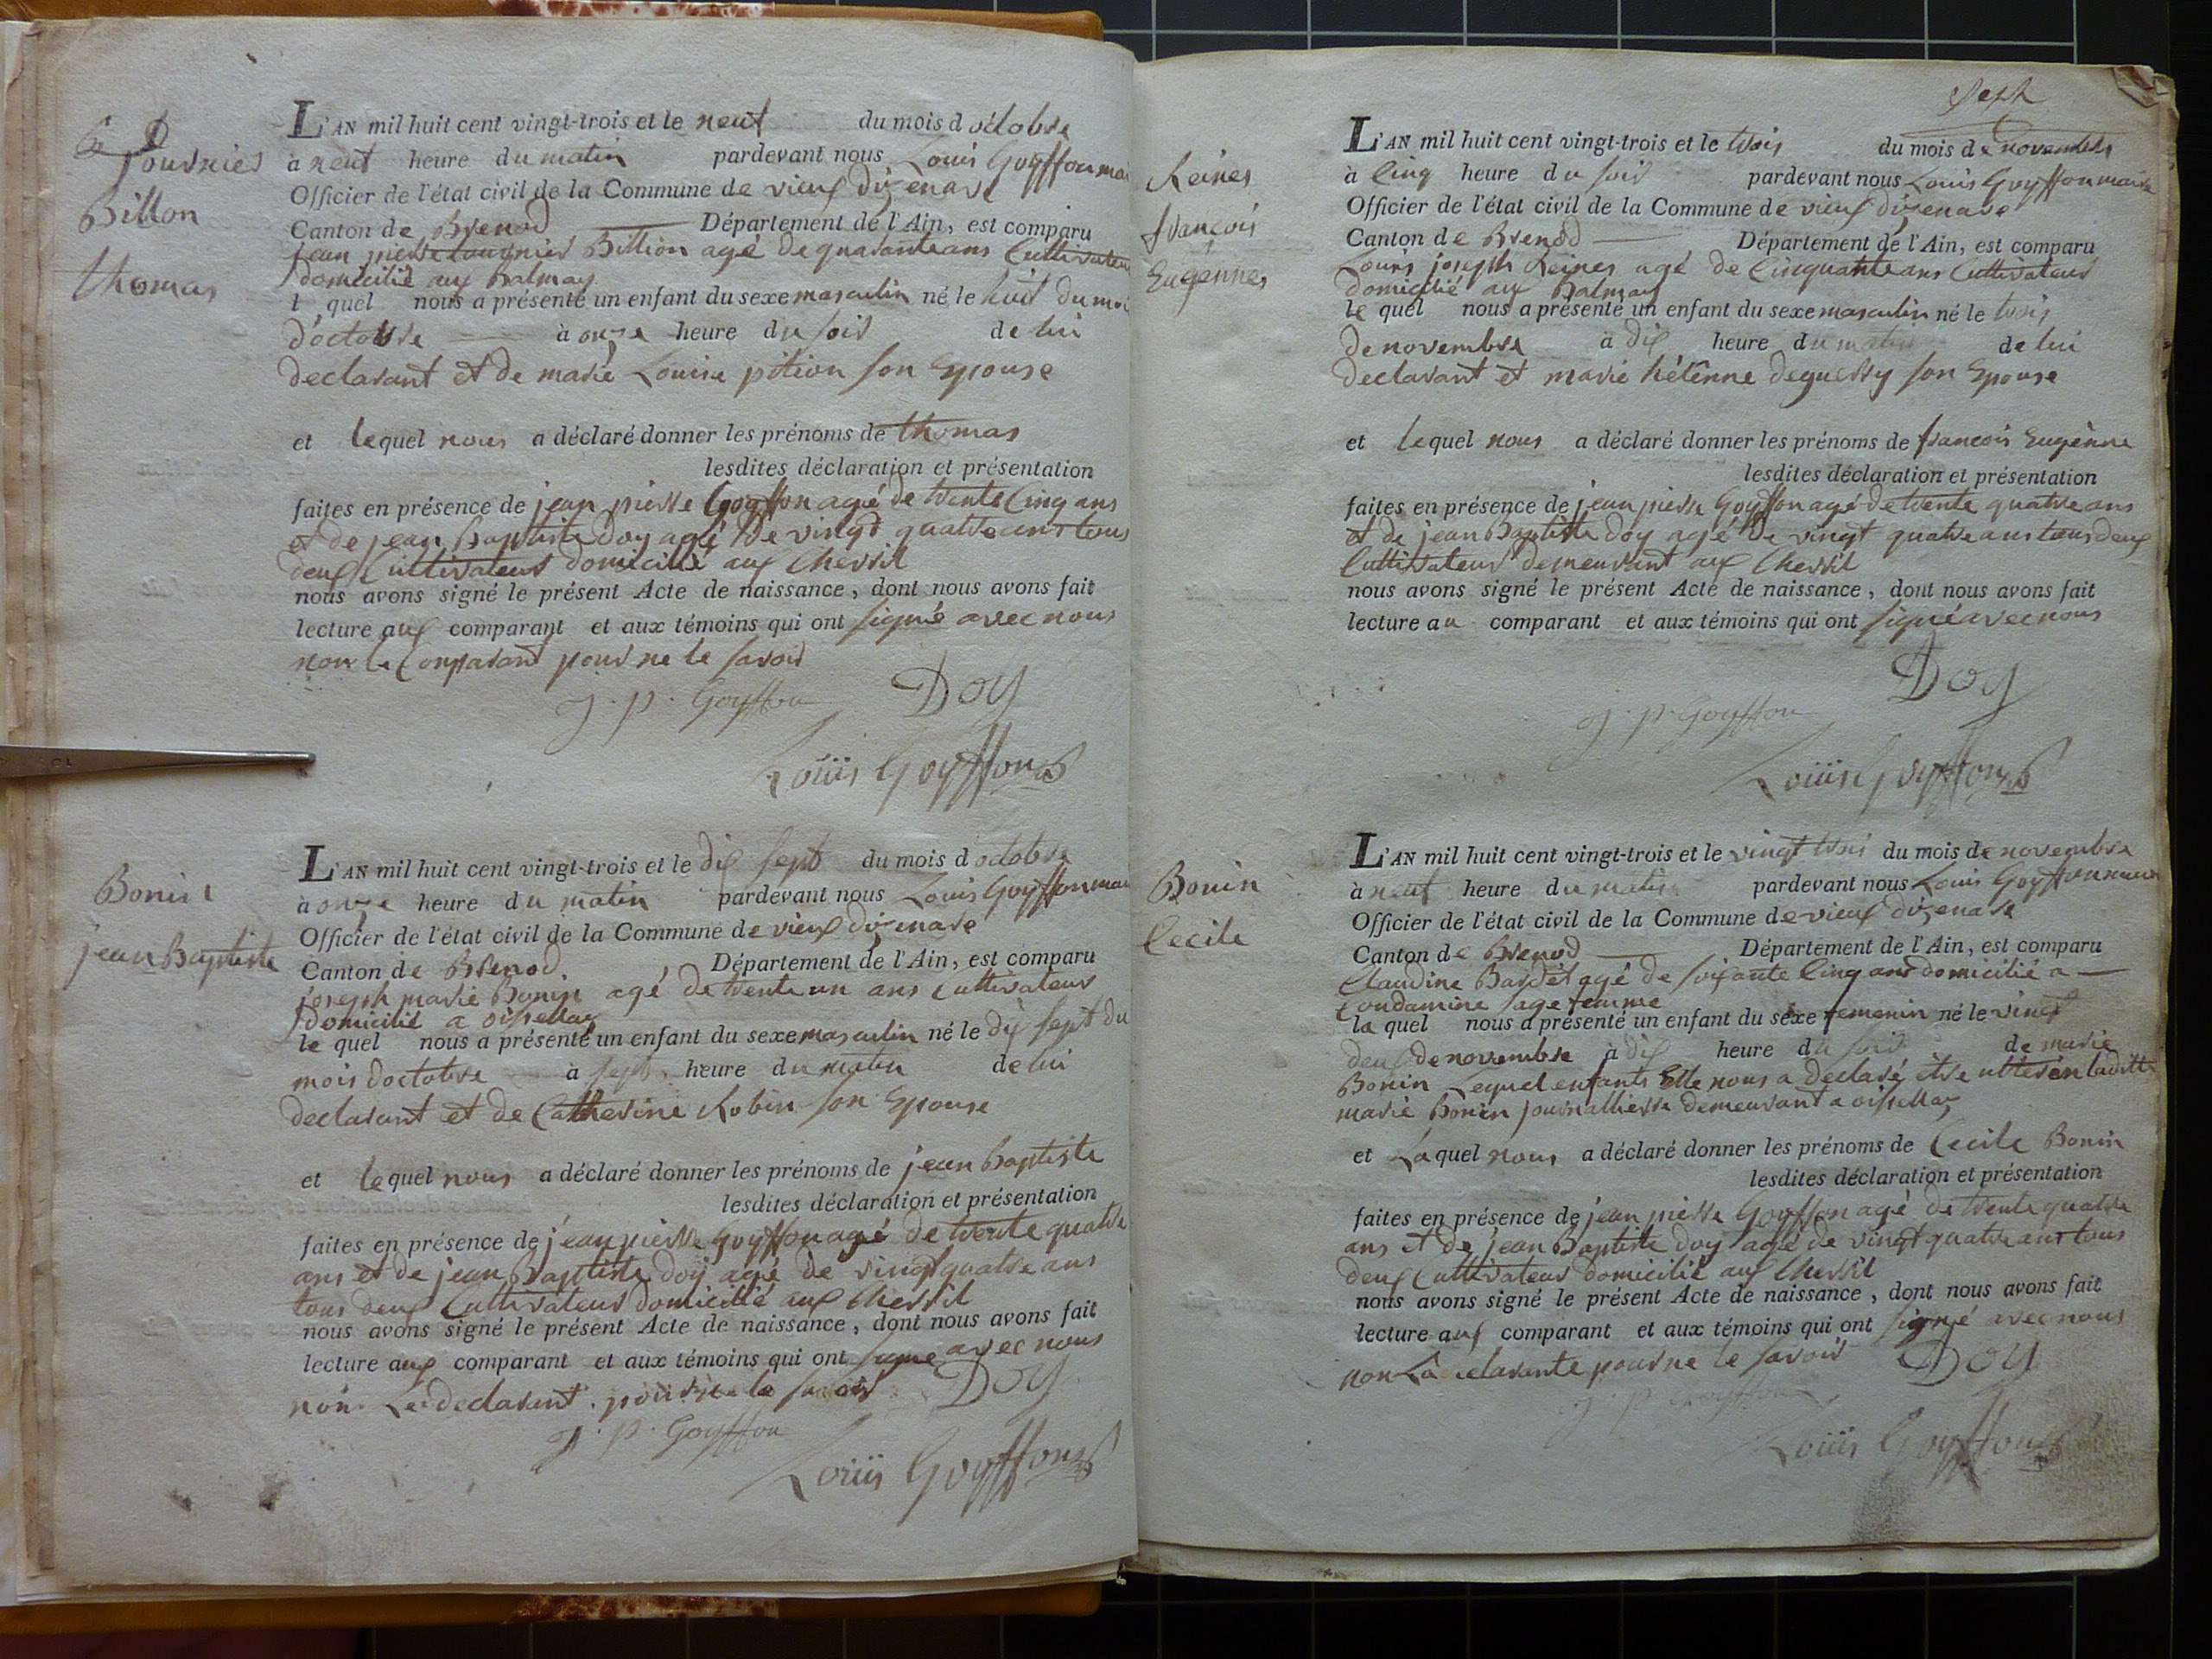 fournier
Billon
thomas
L'AN mil huit cent vingt-trois et le neuf du mois d octobre
à neuf heure du matin pardevant nous Louis Goyffon mai
Officier de l'état civil de la Commune de vieux dizenave
Canton de Brenod Département de l'Ain, est comparu
jean pierre Billion agé de quarante ans Cultivateur
domicilié aux Balmay
l quel nous a présenté un enfant du sexe masculin né le huit du moi
d'octobre à onze heure du soir de lui
declarant et de marie Louise pition son Epouse
et lequel nous a déclaré donner les prénoms de thomas
lesdites déclaration et présentation
faites en présence de jean pierre Goyffon agé de trente Cinq ans
et de jean Baptiste Doy agé De vingt quatre ans tous
deux Cultivateurs domicilié aux Chevril
nous avons signé le présent Acte de naissance, dont nous avons fait
lecture aux comparant et aux témoins qui ont signé avec nous
non le Comparant pour ne le savoir
J. P. Goyffon Doy
Louis Goyffon
Bonin
jean Baptiste
L'AN mil huit cent vingt-trois et le dix sept du mois d octobre
à onze heure du matin pardevant nous Louis Goyffon mai
Officier de l'état civil de la Commune de vieux dizenave
Canton de Brenod Département de l'Ain, est comparu
joseph marie Bonin agé de trente un ans Cultivateur
domicilié a oissellaz
le quel nous a présenté un enfant du sexe masculin né le dix sept du
mois doctobre à sept heure du matin de lui
declarant et de Catherine Robin son Epouse
et lequel nous a déclaré donner les prénoms de jean Baptiste
lesdites déclaration et présentation
faites en présence de jean pierre Goyffon agé de trente quatre
ans et de jean Baptiste doy agé de vingt quatre ans
tous deux Cultivateurs domicillié aux Chevril
nous avons signé le présent Acte de naissance, dont nous avons fait
lecture aux comparant et aux témoins qui ont signe avec nous
non Le declarant pour ne le savoir Doy
J. P. Goyffon
Louis Goyffon
Sept
Reines
françois
Eugennes
L'AN mil huit cent vingt-trois et le trois du mois de novembre
à Cinq heure du soir pardevant nous Louis Goyffon maire
Officier de l'état civil de la Commune de vieux dizenave
Canton de Brenod Département de l'Ain, est comparu
Louis joseph Reines agé de Cinquante ans Cultivateur
domicilié aux Balmay
le quel nous a présenté un enfant du sexe masculin né le trois
de novembre à dix heure du matin de lui
declarant et marie hélénne deguerry son Epouse
et lequel nous a déclaré donner les prénoms de francois Eugènne
lesdites déclaration et présentation
faites en présence de jean pierre Goyffon agé de trente quatre ans
et de jean Baptiste doy agé De vingt quatre ans tous deux
Cultivateur demeurant aux Chevril
nous avons signé le présent Acte de naissance, dont nous avons fait
lecture au comparant et aux témoins qui ont signé avec nous
Doy
J. P. Goyffon
Louis Goyffon
Bonin
Cecile
L'AN mil huit cent vingt-trois et le vingt trois du mois de novembre
à neuf heure du matin pardevant nous Louis Goyffon maire
Officier de l'état civil de la Commune de vieux dizenave
Canton de Brenod Département de l'Ain, est comparu
Claudine Bardet agé de soixante Cinq ans domicilié a
Condamine sage femme
la quel nous a présenté un enfant du sexe femenin né le vingt
deux de novembre à dix heure du soir de marie
Bonin Lequel enfants Elle nous a declaré être utterén laditte
marie Bonin journallierre demeurant a oissellaz
et Laquel nous a déclaré donner les prénoms de Cecile Bonin
lesdites déclaration et présentation
faites en présence de jean pierre Goyffon agé de trente quatre
ans et de jean Baptiste doy agé de vingt quatre ans tous
deux Cultivateur domicilié aux Chevril
nous avons signé le présent Acte de naissance, dont nous avons fait
lecture aux comparant et aux témoins qui ont signé avec nous
non La clarante pour ne le savoir Doy
J. P. Goyffon
Louis Goyffon